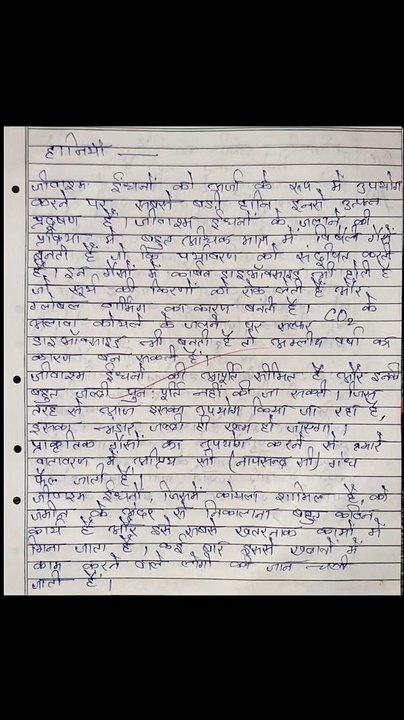 हानियाँ —
जीवाश्म ईंधनों को ऊर्जा के रूप में उपयोग
करने पर सबसे बड़ी हानि इनसे उत्पन्न
प्रदूषण है। जीवाश्म ईंधनों के जलाने की
प्रक्रिया में बहुत अधिक मात्रा में विषैली गैसें
बनती है जो कि पर्यावरण को संदूषित करती
है। इन गैसों में कार्बन डाइऑक्साइड भी होती है
जो सूर्य की किरणों को रोक लेती हैं और
ग्लोबल वार्मिंग का कारण बनती है। CO2 के
अलावा कोयले के जलने पर सल्फर
डाइऑक्साइड भी बनती है जो अम्लीय वर्षा का
कारण बन सकती है।
जीवाश्म ईंधनों की आपूर्ति सीमित है और इनकी
बहुत जल्दी पुनः पूर्ति नहीं की जा सकती। जिस
तरह से आज इसका उपयोग किया जा रहा है,
इसका भण्डार जल्दी ही खत्म हो जाएगा।
प्राकृतिक गैसों का उपयोग करने से हमारे
वातावरण में अप्रिय सी (नापसन्द सी) गंध
फैल जाती है।
जीवाश्म ईंधनों, जिसमें कोयला शामिल है, को
जमीन के अंदर से निकालना बहुत कठिन
कार्य है और इसे सबसे खतरनाक कामों में
गिना जाता है, कई बार इससे खदानों में
काम करने वाले लोगों की जान चली
जाती है।